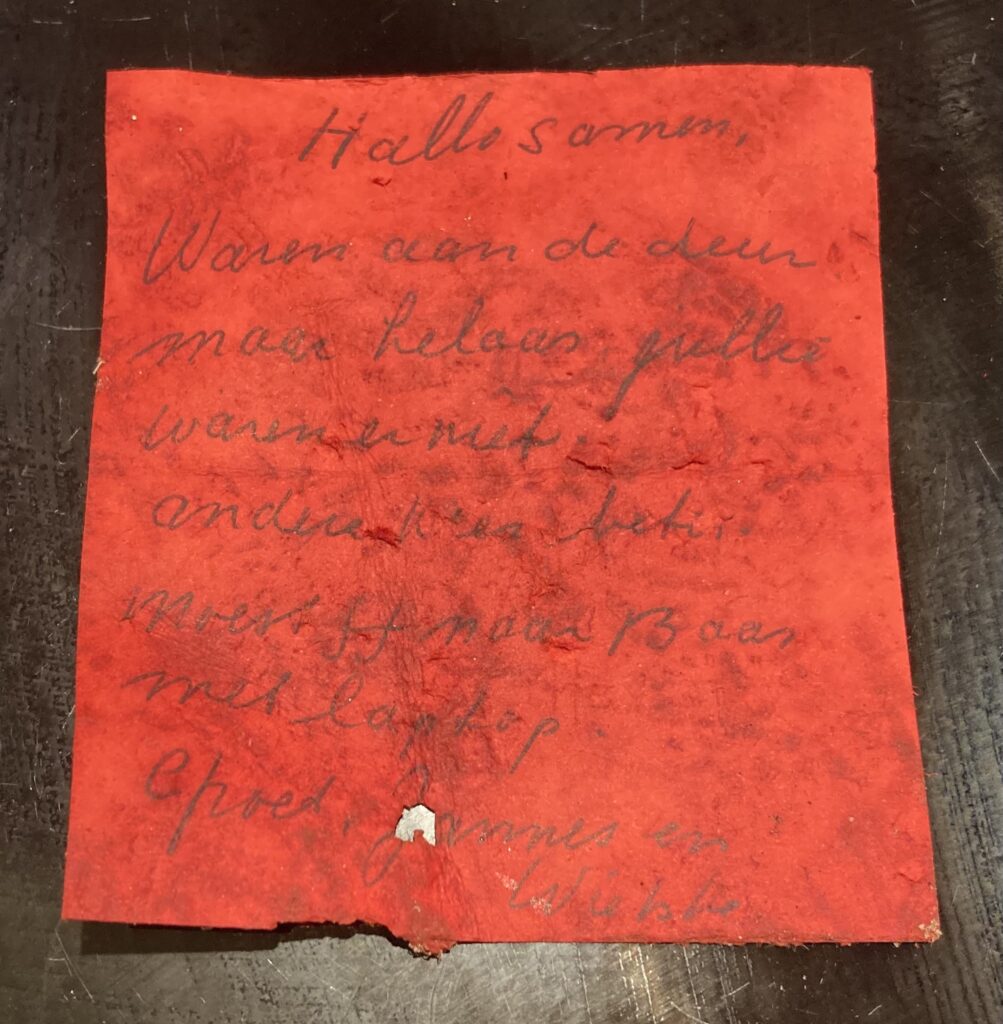 Hallo samen,
Waren aan de deur
maar helaas jullie
waren er niet.
andere k er beter.
Moest ff naar Baas
met laptop.
Groet, Jannes en
Wietske